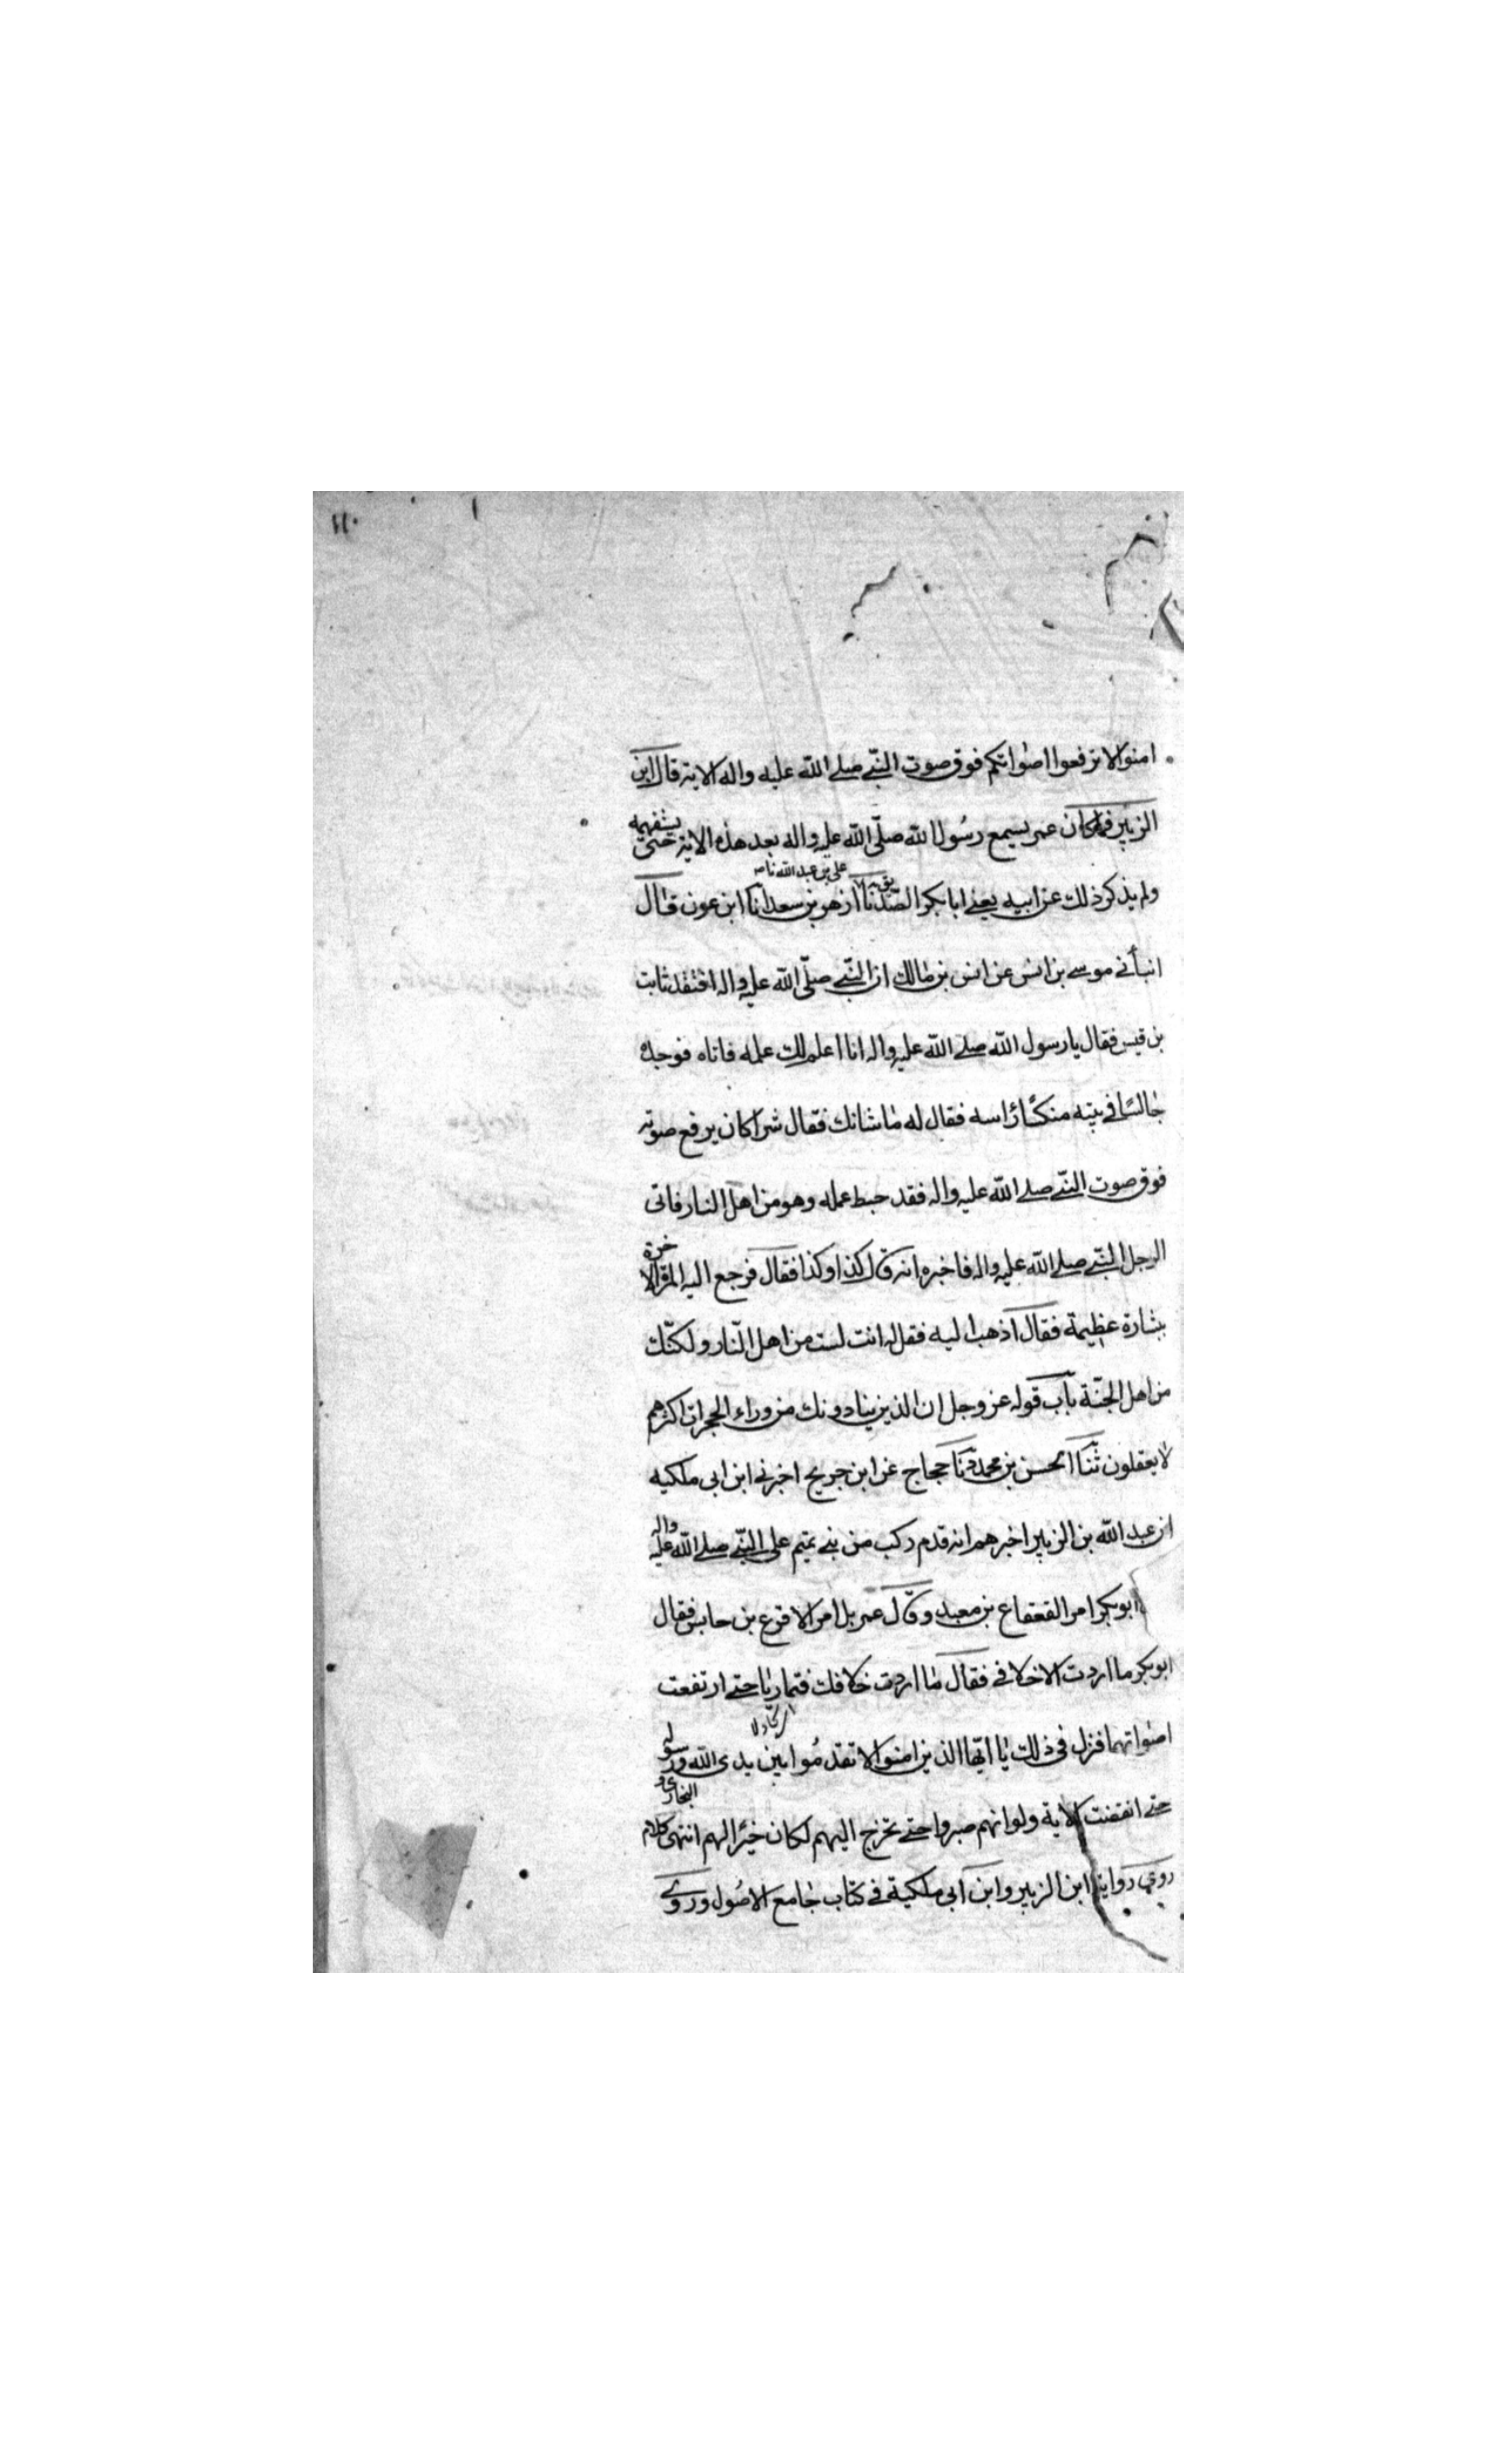 ١١٠
امنوا لا ترفعوا اصواتكم فوق صوت النبّي صلے اللّه عليه واله الاية قال ابن
الزبير فما كان عمر يسمع رسُول اللّه صلّى اللّه عليه واله بعد هذه الاية حتّى يستفهمه
ولم يذكر ذلك عن ابيه يعني ابا بكر الصّديق ثنا علي بن عبد اللّه نا ازهر بن سعد انا ابن عون قال
انبأني موسى بن انس عن انس بن مالك ان النبّي صلّى اللّه عليه واله افتقد ثابت
بن قيس فقال يا رسول اللّه صلے اللّه عليه واله انا اعلم لك عمله فاتاه فوجده
جالسًا في بيته منكسًا رأسه فقال له ما شانك فقال شر اكان يرفع صوته
فوق صوت النبّي صلے اللّه عليه واله فقد حبط عمله وهو من اهل النار فاتى
الرجل النبّي صلے اللّه عليه واله فاخبره انه قال كذا وكذا فقال فرجع اليه المرة الاخرة
ببشارة عظيمة فقال اذهب اليه فقل له انت لست من اهل النّار ولكنّك
من اهل الجنّة باب قوله عز وجل ان الذين ينادونك من وراء الحجرات اكثرهم
لا يعقلون ثنا الحسن بن محمد ثنا حجاج عن ابن جريج اخبرني ابن ابى ملكيه
ان عبد اللّه بن الزبير اخبرهم انه قدم ركب من بني تميم على النبّي صلے اللّه عليه واله
ابو بكر امر القعقاع بن معبد وقال عمر بل امر الاقرع بن حابس فقال
ابو بكر ما اردت الا خلافي فقال ما اردت خلافك فتماريا حتے ارتفعت
اصواتهما فنزل في ذلك يا ايّها الذين امنوا لا تقدمُوا بين يدى اللّه ورسوله
حتے انقضت الاية ولو انهم صبروا حتے تخرج اليهم لكان خيرًا لهم انتهى كلام البخارى و
روى رواية ابن الزبير وابن ابى ملكية في كتاب جامع الاصُول وروى